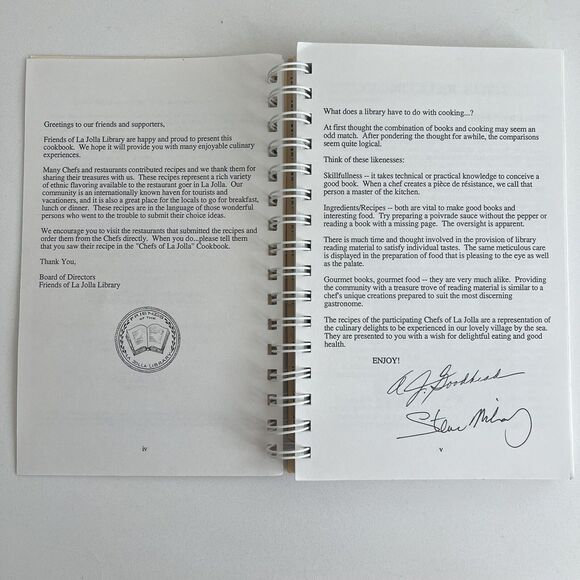 Greetings to our friends and supporters,
Friends of La Jolla Library are happy and proud to present this
cookbook. We hope it will provide you with many enjoyable culinary
experiences.
Many Chefs and restaurants contributed recipes and we thank them for
sharing their treasures with us. These recipes represent a rich variety
of ethnic flavoring available to the restaurant goer in La Jolla. Our
community is an internationally known haven for tourists and
vacationers, and it is also a great place for the locals to go for breakfast,
lunch or dinner. These recipes are in the language of those wonderful
persons who went to the trouble to submit their choice ideas.
We encourage you to visit the restaurants that submitted the recipes and
order them from the Chefs directly. When you do...please tell them
that you saw their recipe in the "Chefs of La Jolla" Cookbook.
Thank You,
Board of Directors
Friends of La Jolla Library
FRIENDS
OF THE
LA JOLLA LIBRARY
iv
What does a library have to do with cooking...?
At first thought the combination of books and cooking may seem an
odd match. After pondering the thought for awhile, the comparisons
seem quite logical.
Think of these likenesses:
Skillfullness -- it takes technical or practical knowledge to conceive a
good book. When a chef creates a pièce de résistance, we call that
person a master of the kitchen.
Ingredients/Recipes -- both are vital to make good books and
interesting food. Try preparing a poivrade sauce without the pepper or
reading a book with a missing page. The oversight is apparent.
There is much time and thought involved in the provision of library
reading material to satisfy individual tastes. The same meticulous care
is displayed in the preparation of food that is pleasing to the eye as well
as the palate.
Gourmet books, gourmet food -- they are very much alike. Providing
the community with a treasure trove of reading material is similar to a
chef's unique creations prepared to suit the most discerning
gastronome.
The recipes of the participating Chefs of La Jolla are a representation of
the culinary delights to be experienced in our lovely village by the sea.
They are presented to you with a wish for delightful eating and good
health.
ENJOY!
v